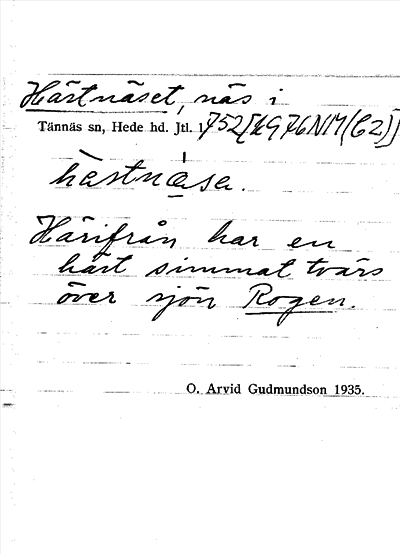 Hästnäset, näs i
Tännäs sn, Hede hd. Jtl.
hästnäsa.
Härifrån har en
häst simmat tvärs
över sjön Rogen.
O. Arvid Gudmundson 1935.